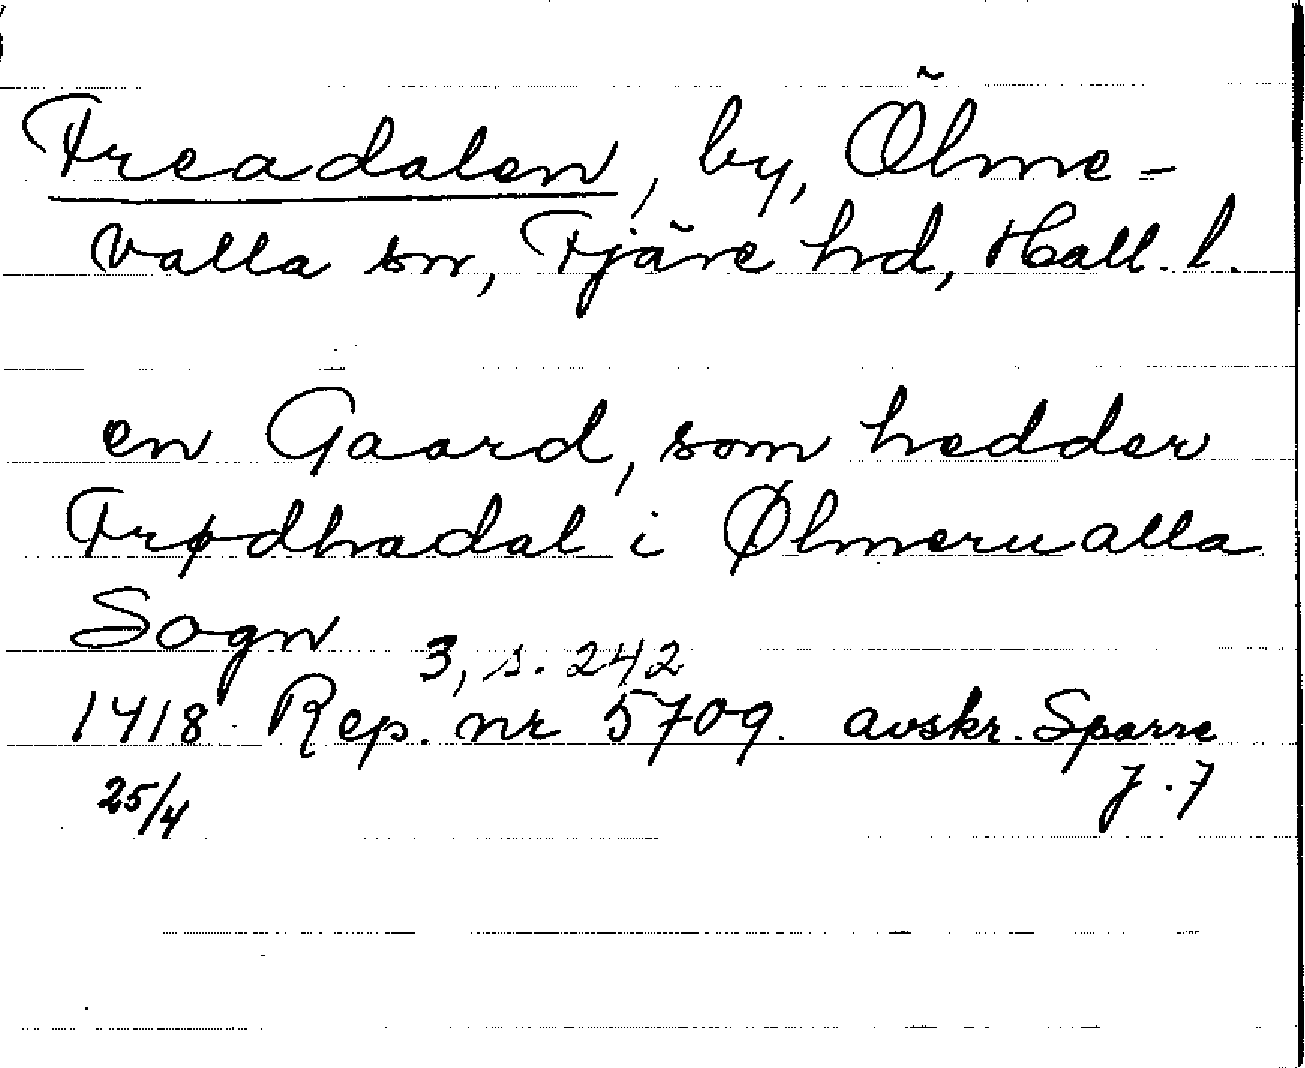 Freadalen, by, Ölme-
valla sn, Fjäre hd, Hall. l.
en Gaard, som hedder
Frødhadal i Ølmerualla
Sogn
3, s. 242
1418 Rep. nr 5709. avskr. Sparre
25/4 J. 7